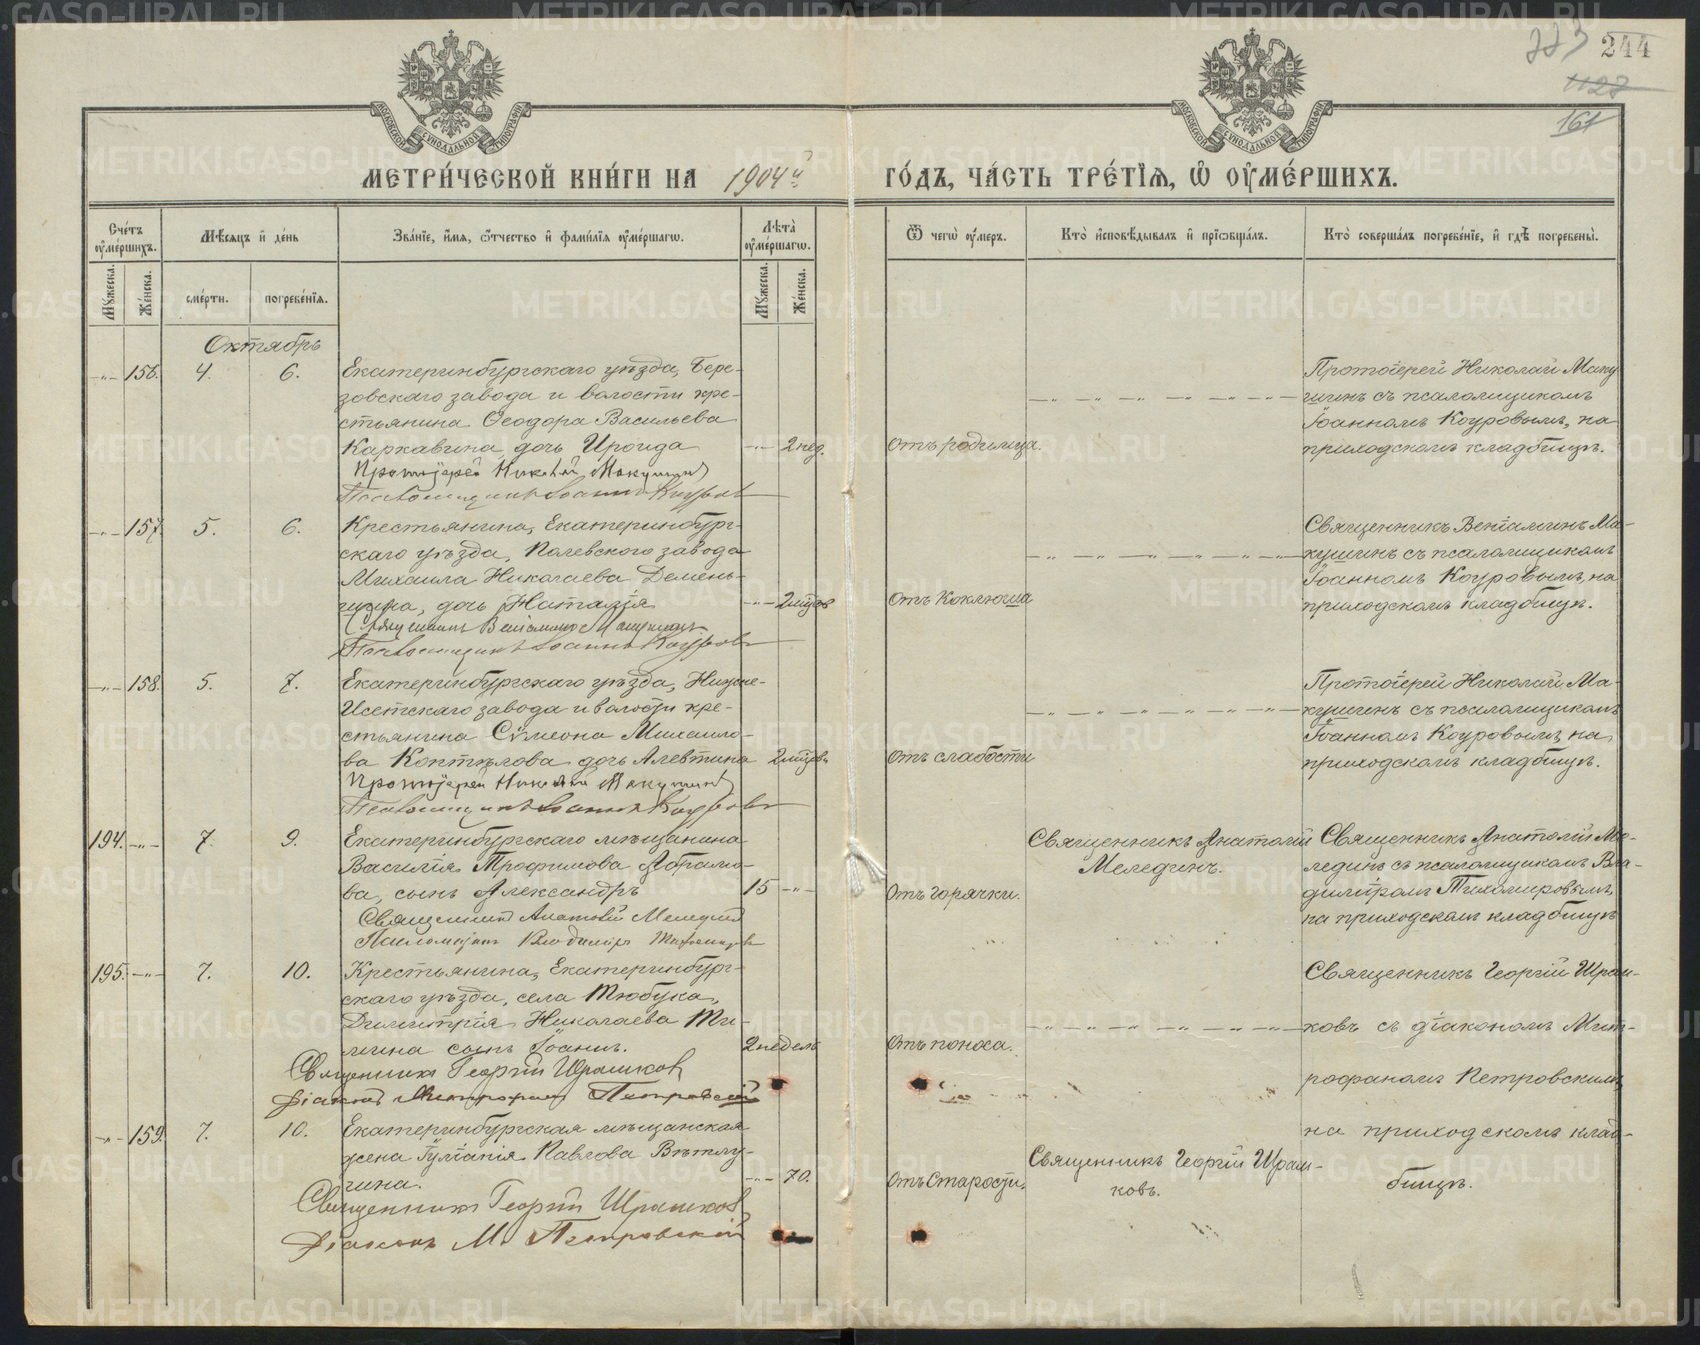 223 244
1127
161
МОСКОВСКОЙ СѴНОДАЛЬНОЙ ТИПОГРАФІИ
МОСКОВСКОЙ СѴНОДАЛЬНОЙ ТИПОГРАФІИ
МЕТРИ́ЧЕСКОЙ КНИ́ГИ НА 1904й ГО́ДЪ, ЧА́СТЬ ТРЕ́ТІѦ, Ѡ҆ ОУ҆МЕ́РШИХЪ.
Сче́тъ оу҆ме́ршихъ.
Мꙋ́жеска.
Же́нска.
Мѣ́сѧцъ и҆ де́нь
сме́рти.
погребе́нїѧ.
Зва́нїе, и҆́мѧ, ѻ҆́тчество и҆ фами́лїѧ оу҆ме́ршагѡ.
Лѣ̑та̀ оу҆ме́ршагѡ.
Мꙋ́жеска.
Же́нска.
Ѿ чегѡ̀ оу҆́меръ.
Кто̀ и҆сповѣ́дывалъ и҆ прїѡбща́лъ.
Кто̀ соверша́лъ погребе́нїе, и҆ гдѣ̀ погребены̀.
Октябрь
-"- 156. 4. 6. Екатеринбургскаго уѣзда, Бере-
зовскаго завода и волости кре-
стьянина Ѳеодора Васильева
Каркавина дочь Ираида -"- 2 нед. Отъ родимца.
Протоіерей Николай Макушинъ
Псаломщикъ Іоаннъ Коуровъ
Протоіерей Николай Маку
шинъ съ псаломщикомъ
Іоанномъ Коуровымъ, на
приходскомъ кладбищѣ.
-"- 157. 5. 6. Крестьянина, Екатеринбург-
скаго уѣзда, Полевского завода
Михаила Николаева Демень-
шина, дочь Наталія -"- 2 мѣсяц. Отъ Коклюша
Священникъ Веніаминъ Макушинъ
Псаломщикъ Іоаннъ Коуровъ
Священникъ Веніаминъ Ма-
кушинъ съ псаломщикомъ
Іоанномъ Коуровымъ, на
приходскомъ кладбищѣ.
-"- 158. 5. 7. Екатеринбургскаго уѣзда, Нижне-
Исетскаго завода и волости кре-
стьянина Сѵмеона Михаило-
ва Коптѣлова дочь Алевтина 2 мѣсяц. Отъ слабости
Протоіерей Николай Макушинъ
Псаломщикъ Іоаннъ Коуровъ
Протоіерей Николай Ма-
кушинъ съ псаломщикомъ
Іоанномъ Коуровымъ, на
приходскомъ кладбищѣ.
194. -"- 7. 9. Екатеринбургскаго мѣщанина
Василія Трофимова Абрамо-
ва, сынъ Александръ 15 -"- Отъ горячки.
Священникъ Анатолій Мелединъ
Псаломщикъ Владиміръ Тихомировъ
Священникъ Анатолій
Мелединъ.
Священникъ Анатолій Ме-
лединъ съ псаломщикомъ Вла-
диміромъ Тихомировымъ,
на приходскомъ кладбищѣ
195. -"- 7. 10. Крестьянина, Екатеринбург-
скаго уѣзда, села Тюбука,
Димитрія Николаева Ти-
мина сынъ Іоаннъ. 2 недель Отъ поноса.
Священникъ Георгій Шрамковъ
Діаконъ Митрофанъ Петровскій
Священникъ Георгій Шрам-
ковъ съ діакономъ Мит-
рофаномъ Петровскимъ
-"- 159. 7. 10. Екатеринбургская мѣщанская
жена Іуліанія Павлова Вѣтлу-
гина. -"- 70. Отъ Старости.
Священникъ Георгій Шрамковъ
Діаконъ М. Петровскій
Священникъ Георгій Шрам-
ковъ.
на приходскомъ клад-
бищѣ.
METRIKI.GASO-URAL.RU